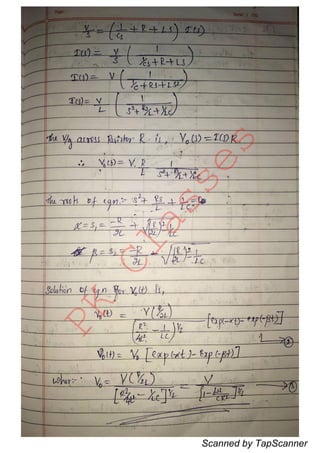 V/S = (1/CS + R + LS) I(S)
I(S) = V/S (1 / (1/CS + R + LS))
I(S) = V (1 / (1/C + RS + LS²))
I(S) = V/L (1 / (S² + RS/L + 1/LC))
The V/g across Resistor R is, V₀(S) = I(S) R
∴ V₀(S) = V R/L 1 / (S² + RS/L + 1/LC)
The roots of eqn:- S² + RS/L + 1/LC = 0
α = S₁ = -R/2L + √((R/2L)² - 1/LC)
β = S₂ = -R/2L - √((R/2L)² - 1/LC)
Solution of eqn for V₀(t) is,
V₀(t) = V(R/2L) / (R²/4L² - 1/LC)^½ [exp(-αt) - exp(-βt)]
V₀(t) = V₀ [exp(-αt) - exp(-βt)] → ②
Where:- V₀ = V(R/2L) / [R²/4L² - 1/LC]^½ = V / [1 - 4L/CR²]^½ → ①
PK Classes
Scanned by TapScanner